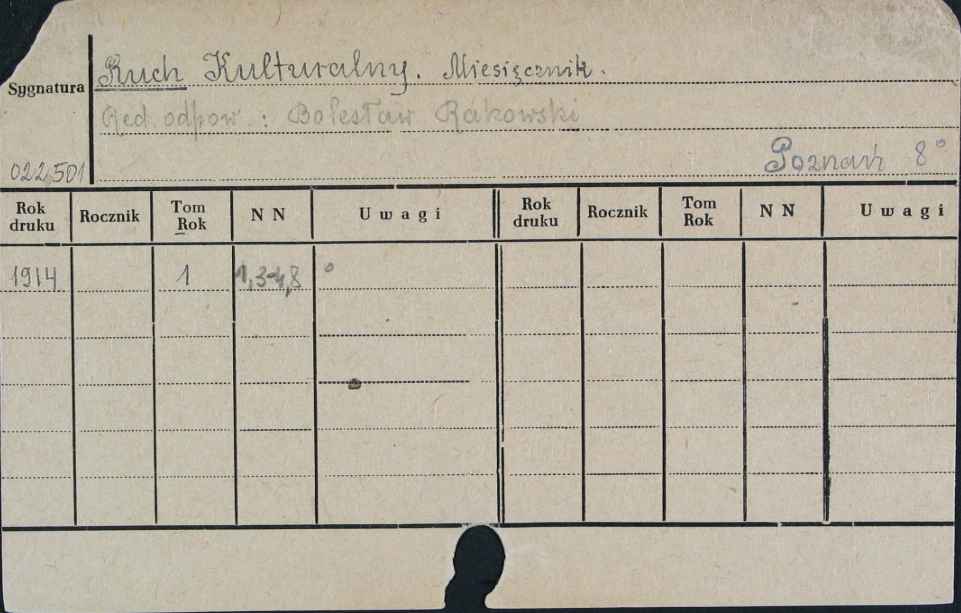 Ruch Kulturalny. Miesięcznik.
Sygnatura
Red. odpow.: Bolesław Rakowski
022,501
Poznań 8°
Rok druku Rocznik Tom Rok N N Uwagi Rok druku Rocznik Tom Rok N N Uwagi
1914 1 1,3-4,8 °